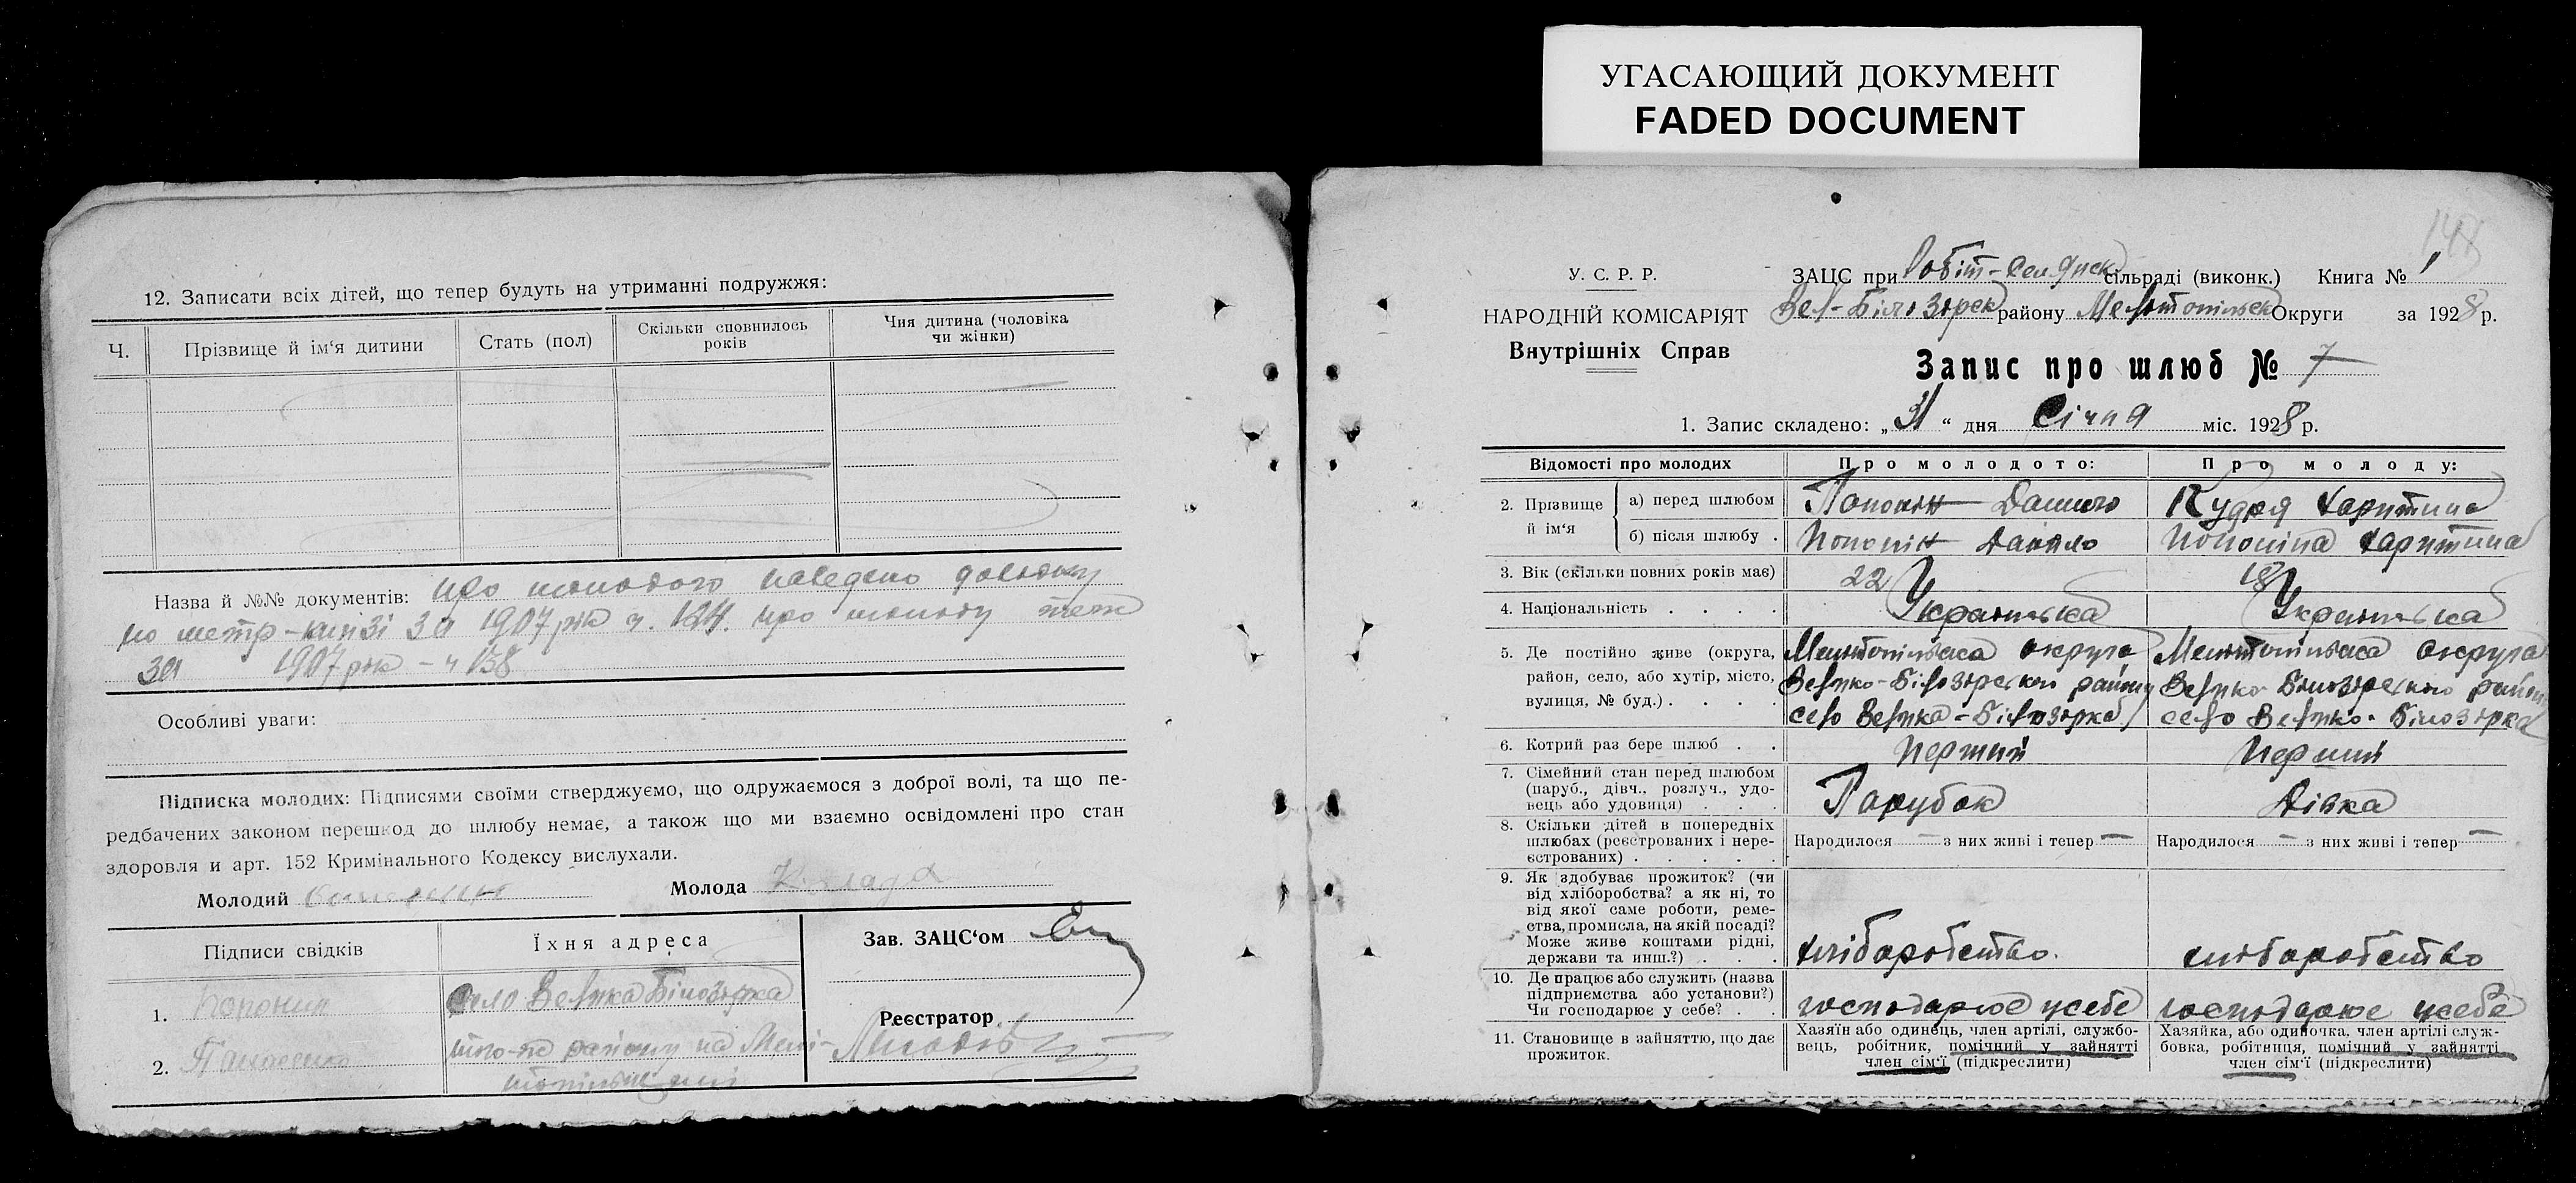 УГАСАЮЩИЙ ДОКУМЕНТ
FADED DOCUMENT
12. Записати всіх дітей, що тепер будуть на утриманні подружжя:
Ч.
Прізвище й ім'я дитини
Стать (пол)
Скільки сповнилось років
Чия дитина (чоловіка чи жінки)
Назва й №№ документів: про молодого наведено довідку
по метр-книзі за 1907 рік ч. 124. про молоду теж
за 1907 рік - ч 138
Особливі уваги:
Підписка молодих: Підписями своїми стверджуємо, що одружаємося з доброї волі, та що пе-
редбачених законом перешкод до шлюбу немає, а також що ми взаємно освідомлені про стан
здоровля и арт. 152 Кримінального Кодексу вислухали.
Молодий
Молода
Підписи свідків
Їхня адреса
Зав. ЗАЦС'ом
1.
село Велика Білозірка
Реєстратор
2.
району на
У. С. Р. Р.
НАРОДНІЙ КОМІСАРІЯТ
Внутрішніх Справ
ЗАЦС при Робіт-Селянск сільраді (виконк.) Книга № 1
Вел-Білозірск району Мелітопільск Округи за 1928 р.
Запис про шлюб № 7
1. Запис складено: „31“ дня Січня міс. 1928 р.
Відомості про молодих
Про молодого:
Про молоду:
2. Прізвище й ім'я
а) перед шлюбом
Данило
Кудря Харитина
б) після шлюбу
Данило
Харитина
3. Вік (скільки повних років має)
22
18
4. Національність
Українська
Українська
5. Де постійно живе (округа, район, село, або хутір, місто, вулиця, № буд.)
Мелітопільська округа
Велико-Білозірського району
село Велика-Білозірка
Мелітопільська округа
Велико Білозірського району
село Велико-Білозірка
6. Котрий раз бере шлюб
Перший
Перший
7. Сімейний стан перед шлюбом (паруб., дівч., розлуч., удовець або удовиця)
Парубок
Дівка
8. Скільки дітей в попередніх шлюбах (реєстрованих і нереєстрованих)
Народилося — з них живі і тепер —
Народилося — з них живі і тепер —
9. Як здобуває прожиток? (чи від хліборобства? а як ні, то від якої саме роботи, ремества, промисла, на якій посаді? Може живе коштами рідні, держави та инш.?)
хліборобство.
хліборобство
10. Де працює або служить (назва підприємства або установи?) Чи господарює у себе?
господарює усебе
господарює усебе
11. Становище в зайняттю, що дає прожиток.
Хазяїн або одинець, член артілі, службовець, робітник, помічний у зайнятті член сім'ї (підкреслити)
Хазяйка, або одиночка, член артілі службовка, робітниця, помічний у зайнятті член сім'ї (підкреслити)